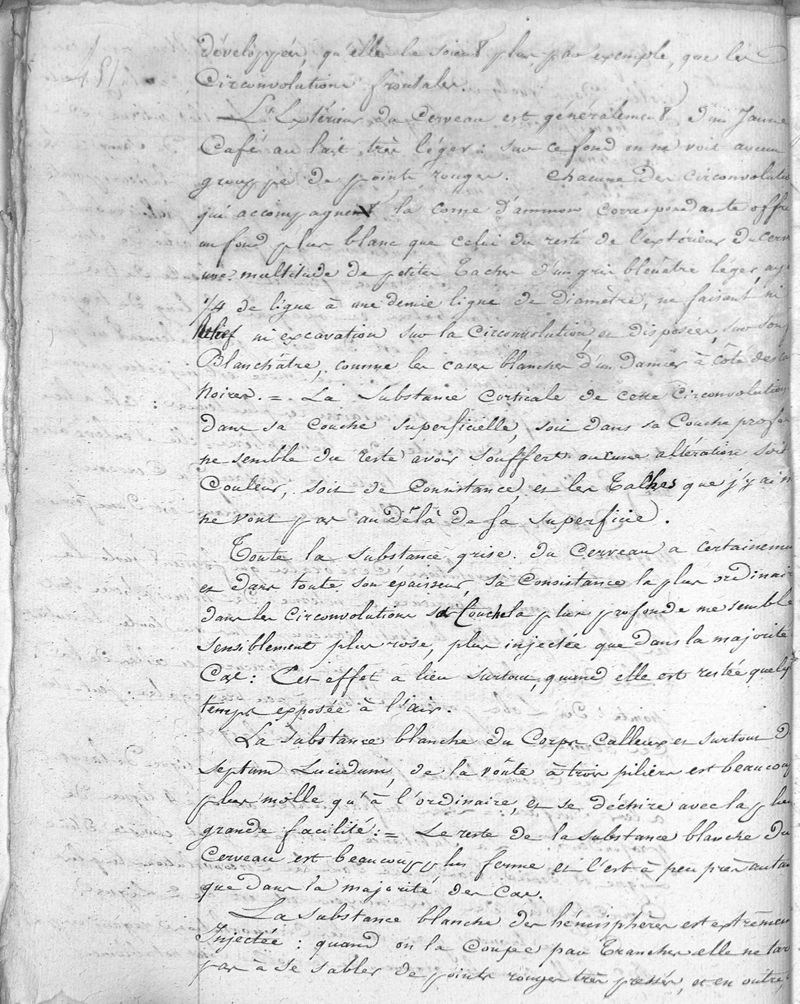 développée, qu'elle le soient plus par exemple, que les
Circonvolutions frontales
L'Extérieur du Cerveau est généralement d'un Jaune
Café au lait très léger : sur ce fond on ne voit aucun
grouppe de points rouges. Chacune des circonvolutio
qui accompagnent la corne d'ammon correspondante offre
un fond plus blanc que celui du reste de l'extérieur du cerv
une multitude de petites taches d'un gris bleuâtre léger, ay
1/4 de ligne à une demie ligne de diamètre, ne faisant ni
relief ni excavation sur la Circonvolution, et disposées, sur son
Blanchâtre, comme les cases blanches d'un Damier à côté des ca
Noires. = La Substance corticale de cette Circonvolution
dans sa couche superficielle, soit dans sa Couche profo
ne semble du reste avoir souffert aucune altération soit
Couleur, soit de Consistance et les Taches que j'y ai n
ne vont pas au delà de sa superficie.
Toute la substance grise du Cerveau a certainemen
et dans toute son épaisseur, sa Consistance la plus ordinair
dans les Circonvolutions sa Couche la plus profonde me semble
sensiblement plus rose, plus injectée que dans la majorité
Cas : Cet effet a lieu surtout, quand elle est restée quelq
temps exposée à l'air.
La substance blanche du Corps Calleux et surtout d
Septum Lucidum, de la voûte à trois piliers est beaucoup
plus molle qu'à l'ordinaire, et se déchire avec la plus
grande facilité : = Le reste de la substance blanche du
Cerveau est beaucoup plus ferme et l'est à peu près autan
que dans la majorité des Cas.
La Substance blanche des hémisphères est extrêmem
Injectée : quand on la Coupe par Tranches elle ne tar
pas à se sabler de points rouges très pressés, et en outre